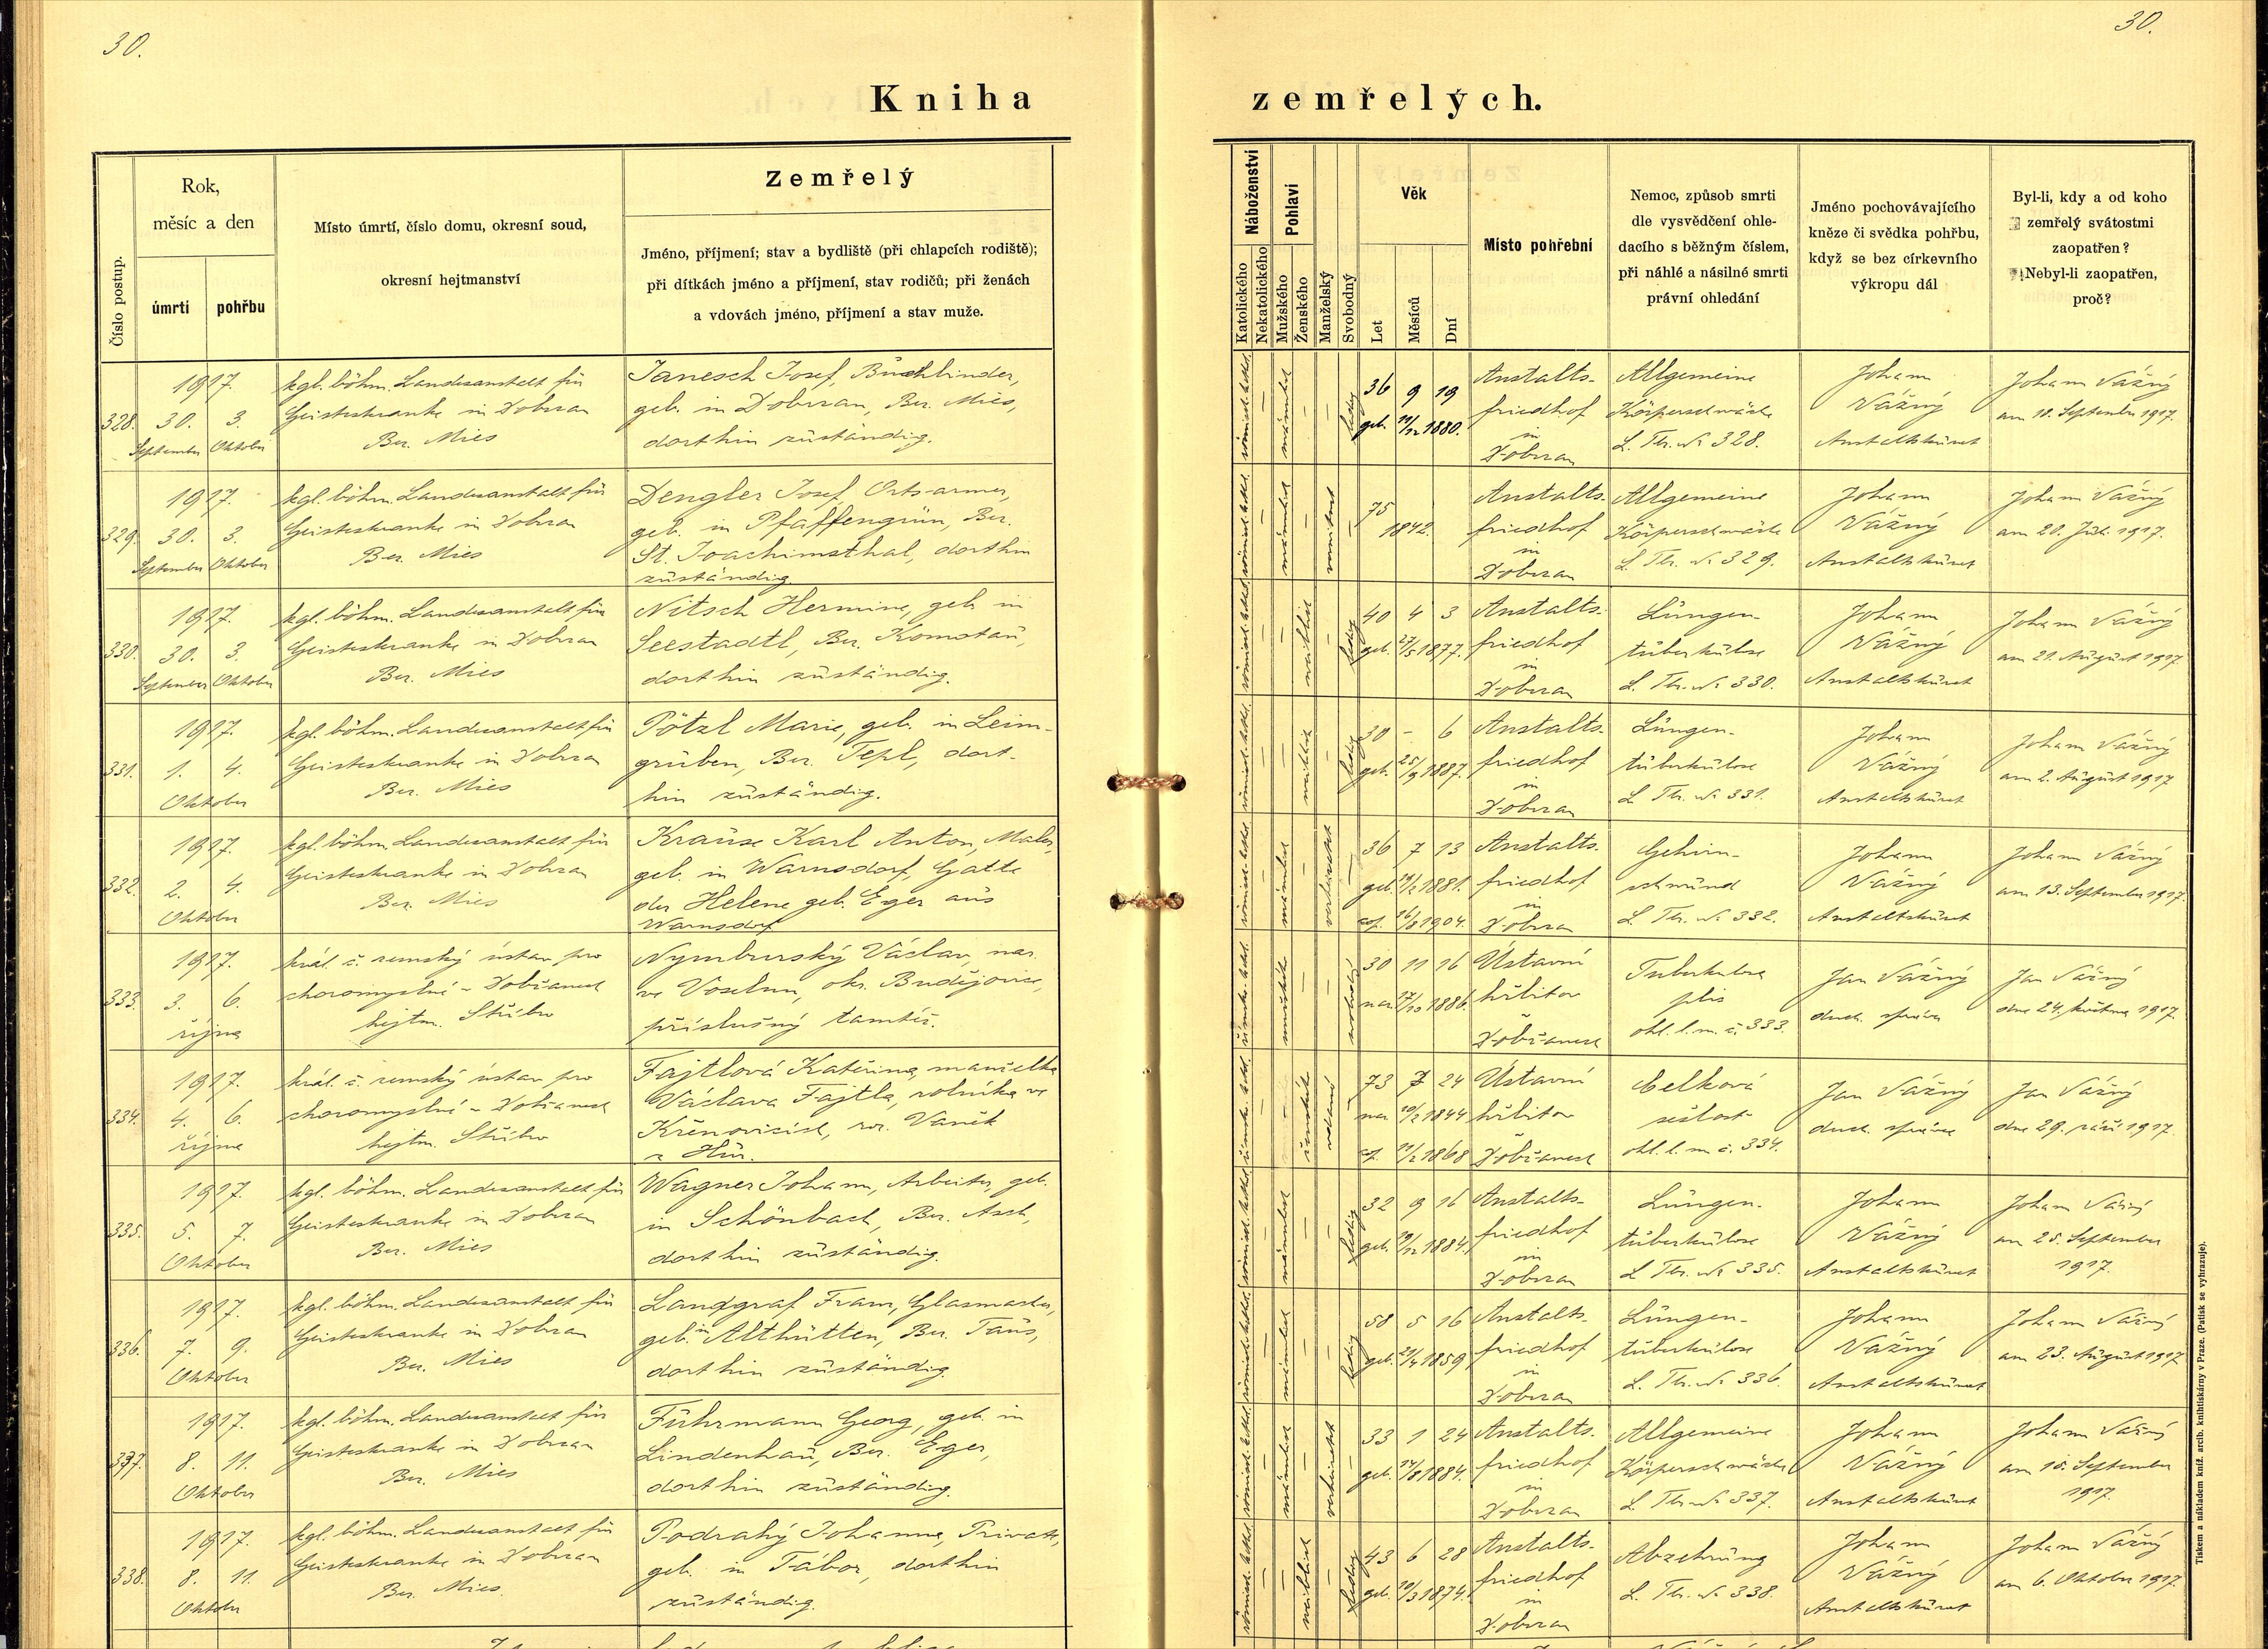 30.
30.
Kniha zemřelých.
Číslo postup.
Rok,
měsíc a den
úmrtí
pohřbu
Místo úmrtí, číslo domu, okresní soud,
okresní hejtmanství
Zemřelý
Jméno, příjmení; stav a bydliště (při chlapcích rodiště);
při dítkách jméno a příjmení, stav rodičů; při ženách
a vdovách jméno, příjmení a stav muže.
Náboženství
Katolického
Nekatolického
Pohlaví
Mužského
Ženského
Manželský
Svobodný
Věk
Let
Měsíců
Dní
Místo pohřební
Nemoc, způsob smrti
dle vysvědčení ohle-
dacího s běžným číslem,
při náhlé a násilné smrti
právní ohledání
Jméno pochovávajícího
kněze či svědka pohřbu,
když se bez církevního
výkropu dál
Byl-li, kdy a od koho
zemřelý svátostmi
zaopatřen?
Nebyl-li zaopatřen,
proč?
328.
1917.
30. 3.
September Oktober
kgl. böhm. Landesanstalt für
Geisteskranke in Dobrzan
Bez. Mies
Janesch Josef, Buchbinder,
geb. in Dobrzan, Bez. Mies,
dorthin zuständig.
römisch-kathol.
männlich
ledig
36 9 19
geb. 11/12 1880.
Anstalts-
friedhof
in
Dobrzan
Allgemeine
Körperschwäche
L. Tbr. No 328.
Johann
Vážný
Anstaltskurat
Johann Vážný
am 18. September 1917.
329.
1917.
30. 3.
September Oktober
kgl. böhm. Landesanstalt für
Geisteskranke in Dobrzan
Bez. Mies
Dengler Josef, Ortsarmer,
geb. in Pfaffengrün, Bez.
St. Joachimsthal, dorthin
zuständig.
römisch-kathol.
männlich
verwitwet
75
1842.
Anstalts-
friedhof
in
Dobrzan
Allgemeine
Körperschwäche
L. Tbr. No 329.
Johann
Vážný
Anstaltskurat
Johann Vážný
am 20. Juli 1917.
330.
1917.
30. 3.
September Oktober
kgl. böhm. Landesanstalt für
Geisteskranke in Dobrzan
Bez. Mies
Nitsch Hermine, geb. in
Seestadtl, Bez. Komotau,
dorthin zuständig.
römisch-kathol.
weiblich
ledig
40 4 3
geb. 27/5 1877.
Anstalts-
friedhof
in
Dobrzan
Lungen-
tuberkulose
L. Tbr. No 330.
Johann
Vážný
Anstaltskurat
Johann Vážný
am 21. August 1917
331.
1917.
1. 4.
Oktober
kgl. böhm. Landesanstalt für
Geisteskranke in Dobrzan
Bez. Mies
Pötzl Marie, geb. in Leim-
gruben, Bez. Tepl, dort-
hin zuständig.
römisch-kathol.
weiblich
ledig
30 - 6
geb. 25/9 1887.
Anstalts-
friedhof
in
Dobrzan
Lungen-
tuberkulose
L. Tbr. No 331.
Johann
Vážný
Anstaltskurat
Johann Vážný
am 2. August 1917
332.
1917.
2. 4.
Oktober
kgl. böhm. Landesanstalt für
Geisteskranke in Dobrzan
Bez. Mies
Krause Karl Anton, Maler,
geb. in Warnsdorf, Gatte
der Helene geb. Eger aus
Warnsdorf
römisch-kathol.
männlich
verheiratet
36 7 13
geb. 19/2 1881.
cop. 16/8 1904.
Anstalts-
friedhof
in
Dobrzan
Gehirn-
schwund
L. Tbr. No 332.
Johann
Vážný
Anstaltskurat
Johann Vážný
am 13. September 1917.
333.
1917.
3. 6.
října
král. č. zemský ústav pro
choromyslné v Dobřanech
hejtm. Stříbro
Nymburský Václav, nar.
ve Voselnu, okr. Budějovice,
příslušný tamtéž.
římsko-kathol.
mužské
svobodný
30 11 16
nar. 17/10 1886.
Ústavní
hřbitov
Dobřanech
Tuberkulosa
plic
ohl. l. m. č. 333.
Jan Vážný
duch. správce
Jan Vážný
dne 24. května 1917.
334.
1917.
4. 6.
října
král. č. zemský ústav pro
choromyslné v Dobřanech
hejtm. Stříbro
Fajtlová Kateřina, manželka
Václava Fajtla, rolníka ve
Křenovicích, roz. Vaněk
z Hůr.
římsko-kathol.
ženské
vdaná
73 7 24
nar. 10/2 1844
cop. 11/2 1868
Ústavní
hřbitov
Dobřanech
Celková
sešlost
ohl. l. m. č. 334.
Jan Vážný
duch. správce
Jan Vážný
dne 29. září 1917.
335.
1917.
5. 7.
Oktober
kgl. böhm. Landesanstalt für
Geisteskranke in Dobrzan
Bez. Mies
Wagner Johann, Arbeiter, geb.
in Schönbach, Bez. Asch,
dorthin zuständig.
römisch-kathol.
männlich
ledig
32 9 16
geb. 19/12 1884.
Anstalts-
friedhof
in
Dobrzan
Lungen-
tuberkulose
L. Tbr. No 335.
Johann
Vážný
Anstaltskurat
Johann Vážný
am 25. September
1917.
336.
1917.
7. 9.
Oktober
kgl. böhm. Landesanstalt für
Geisteskranke in Dobrzan
Bez. Mies
Landgraf Franz, Glasmacher,
geb. in Althütten, Bez. Taus,
dorthin zuständig.
römisch-kathol.
männlich
ledig
58 5 16
geb. 21/4 1859.
Anstalts-
friedhof
in
Dobrzan
Lungen-
tuberkulose
L. Tbr. No 336.
Johann
Vážný
Anstaltskurat
Johann Vážný
am 23. August 1917
337.
1917.
8. 11.
Oktober
kgl. böhm. Landesanstalt für
Geisteskranke in Dobrzan
Bez. Mies
Fuhrmann Georg, geb. in
Lindenhau, Bez. Eger,
dorthin zuständig.
römisch-kathol.
männlich
verheiratet
33 1 24
geb. 14/8 1884.
Anstalts-
friedhof
in
Dobrzan
Allgemeine
Körperschwäche
L. Tbr. No 337.
Johann
Vážný
Anstaltskurat
Johann Vážný
am 18. September
1917.
338.
1917.
8. 11.
Oktober
kgl. böhm. Landesanstalt für
Geisteskranke in Dobrzan
Bez. Mies.
Podrahý Johanna, Private,
geb. in Tábor, dorthin
zuständig.
römisch-kathol.
weiblich
ledig
43 6 28
geb. 10/3 1874.
Anstalts-
friedhof
in
Dobrzan
Abzehrung
L. Tbr. No 338.
Johann
Vážný
Anstaltskurat
Johann Vážný
am 6. Oktober 1917.
Tiskem a nákladem kníž. arcib. knihtiskárny v Praze. (Patisk se vyhrazuje).